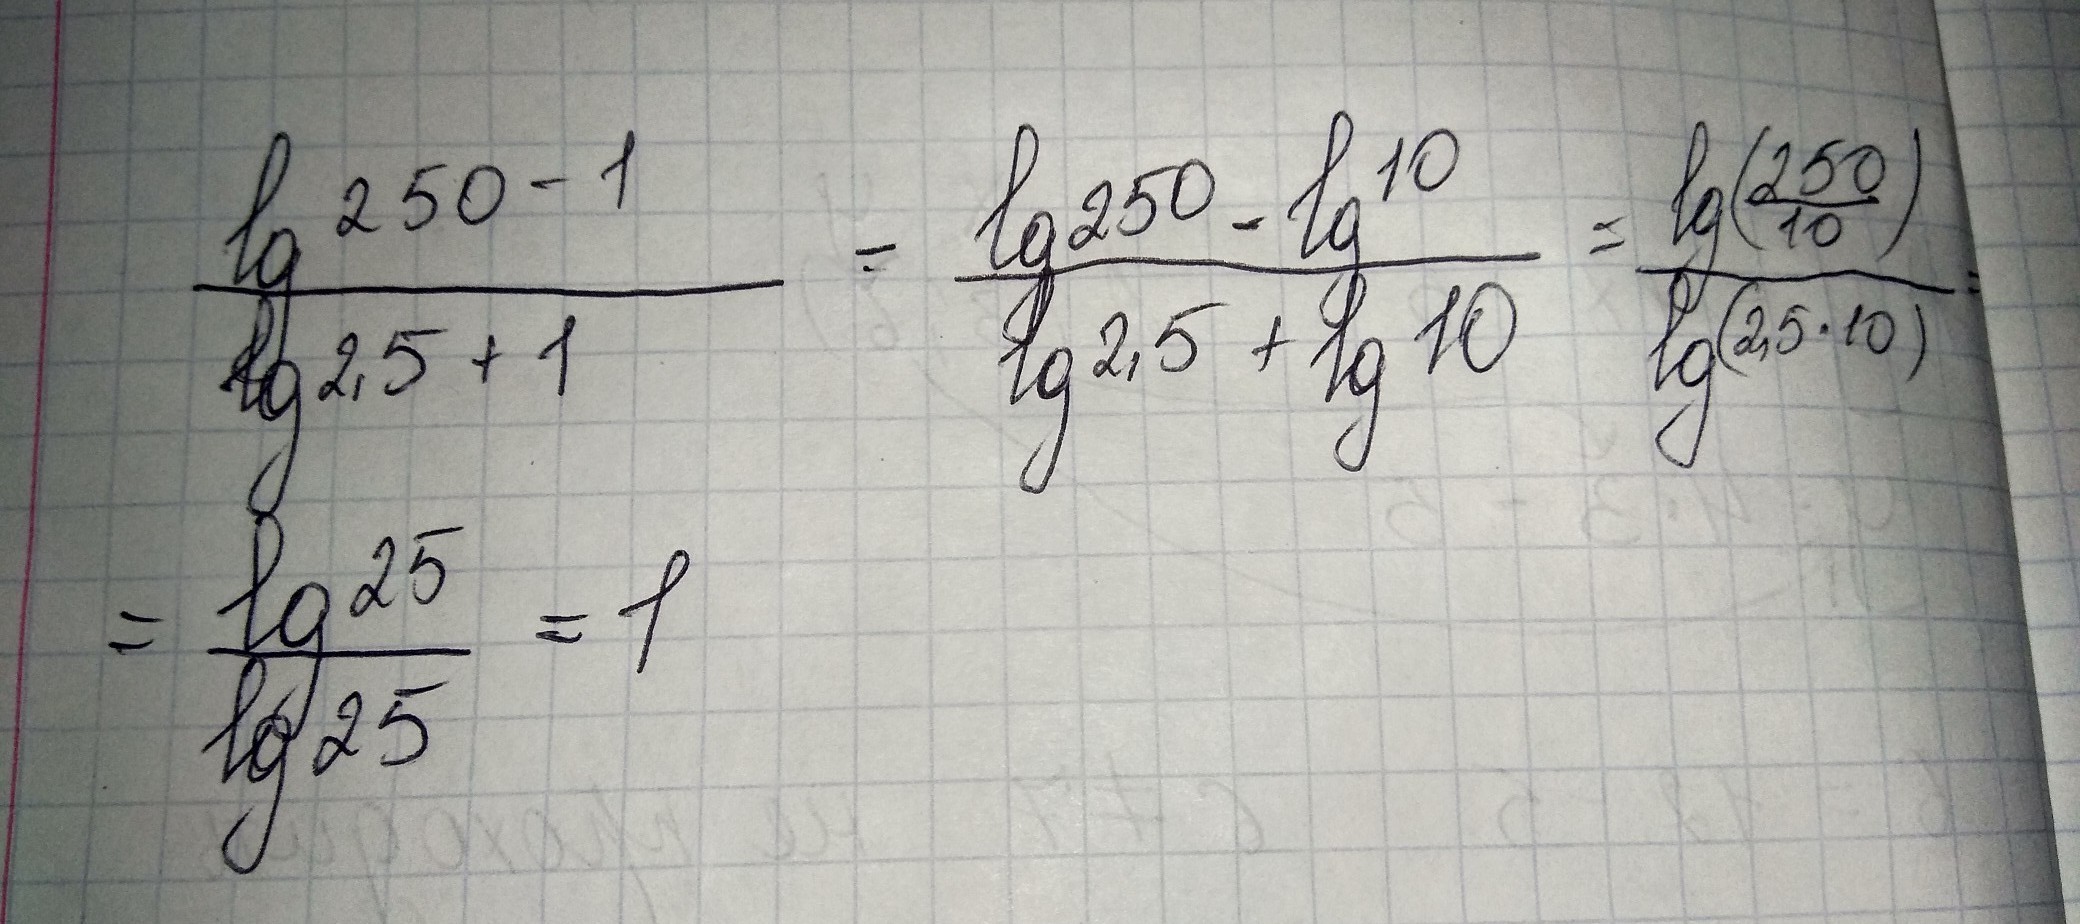 (lg 250 - 1)/(lg 2,5 + 1) = (lg 250 - lg 10)/(lg 2,5 + lg 10) = lg(250/10)/lg(2,5·10) =
= lg 25/lg 25 = 1